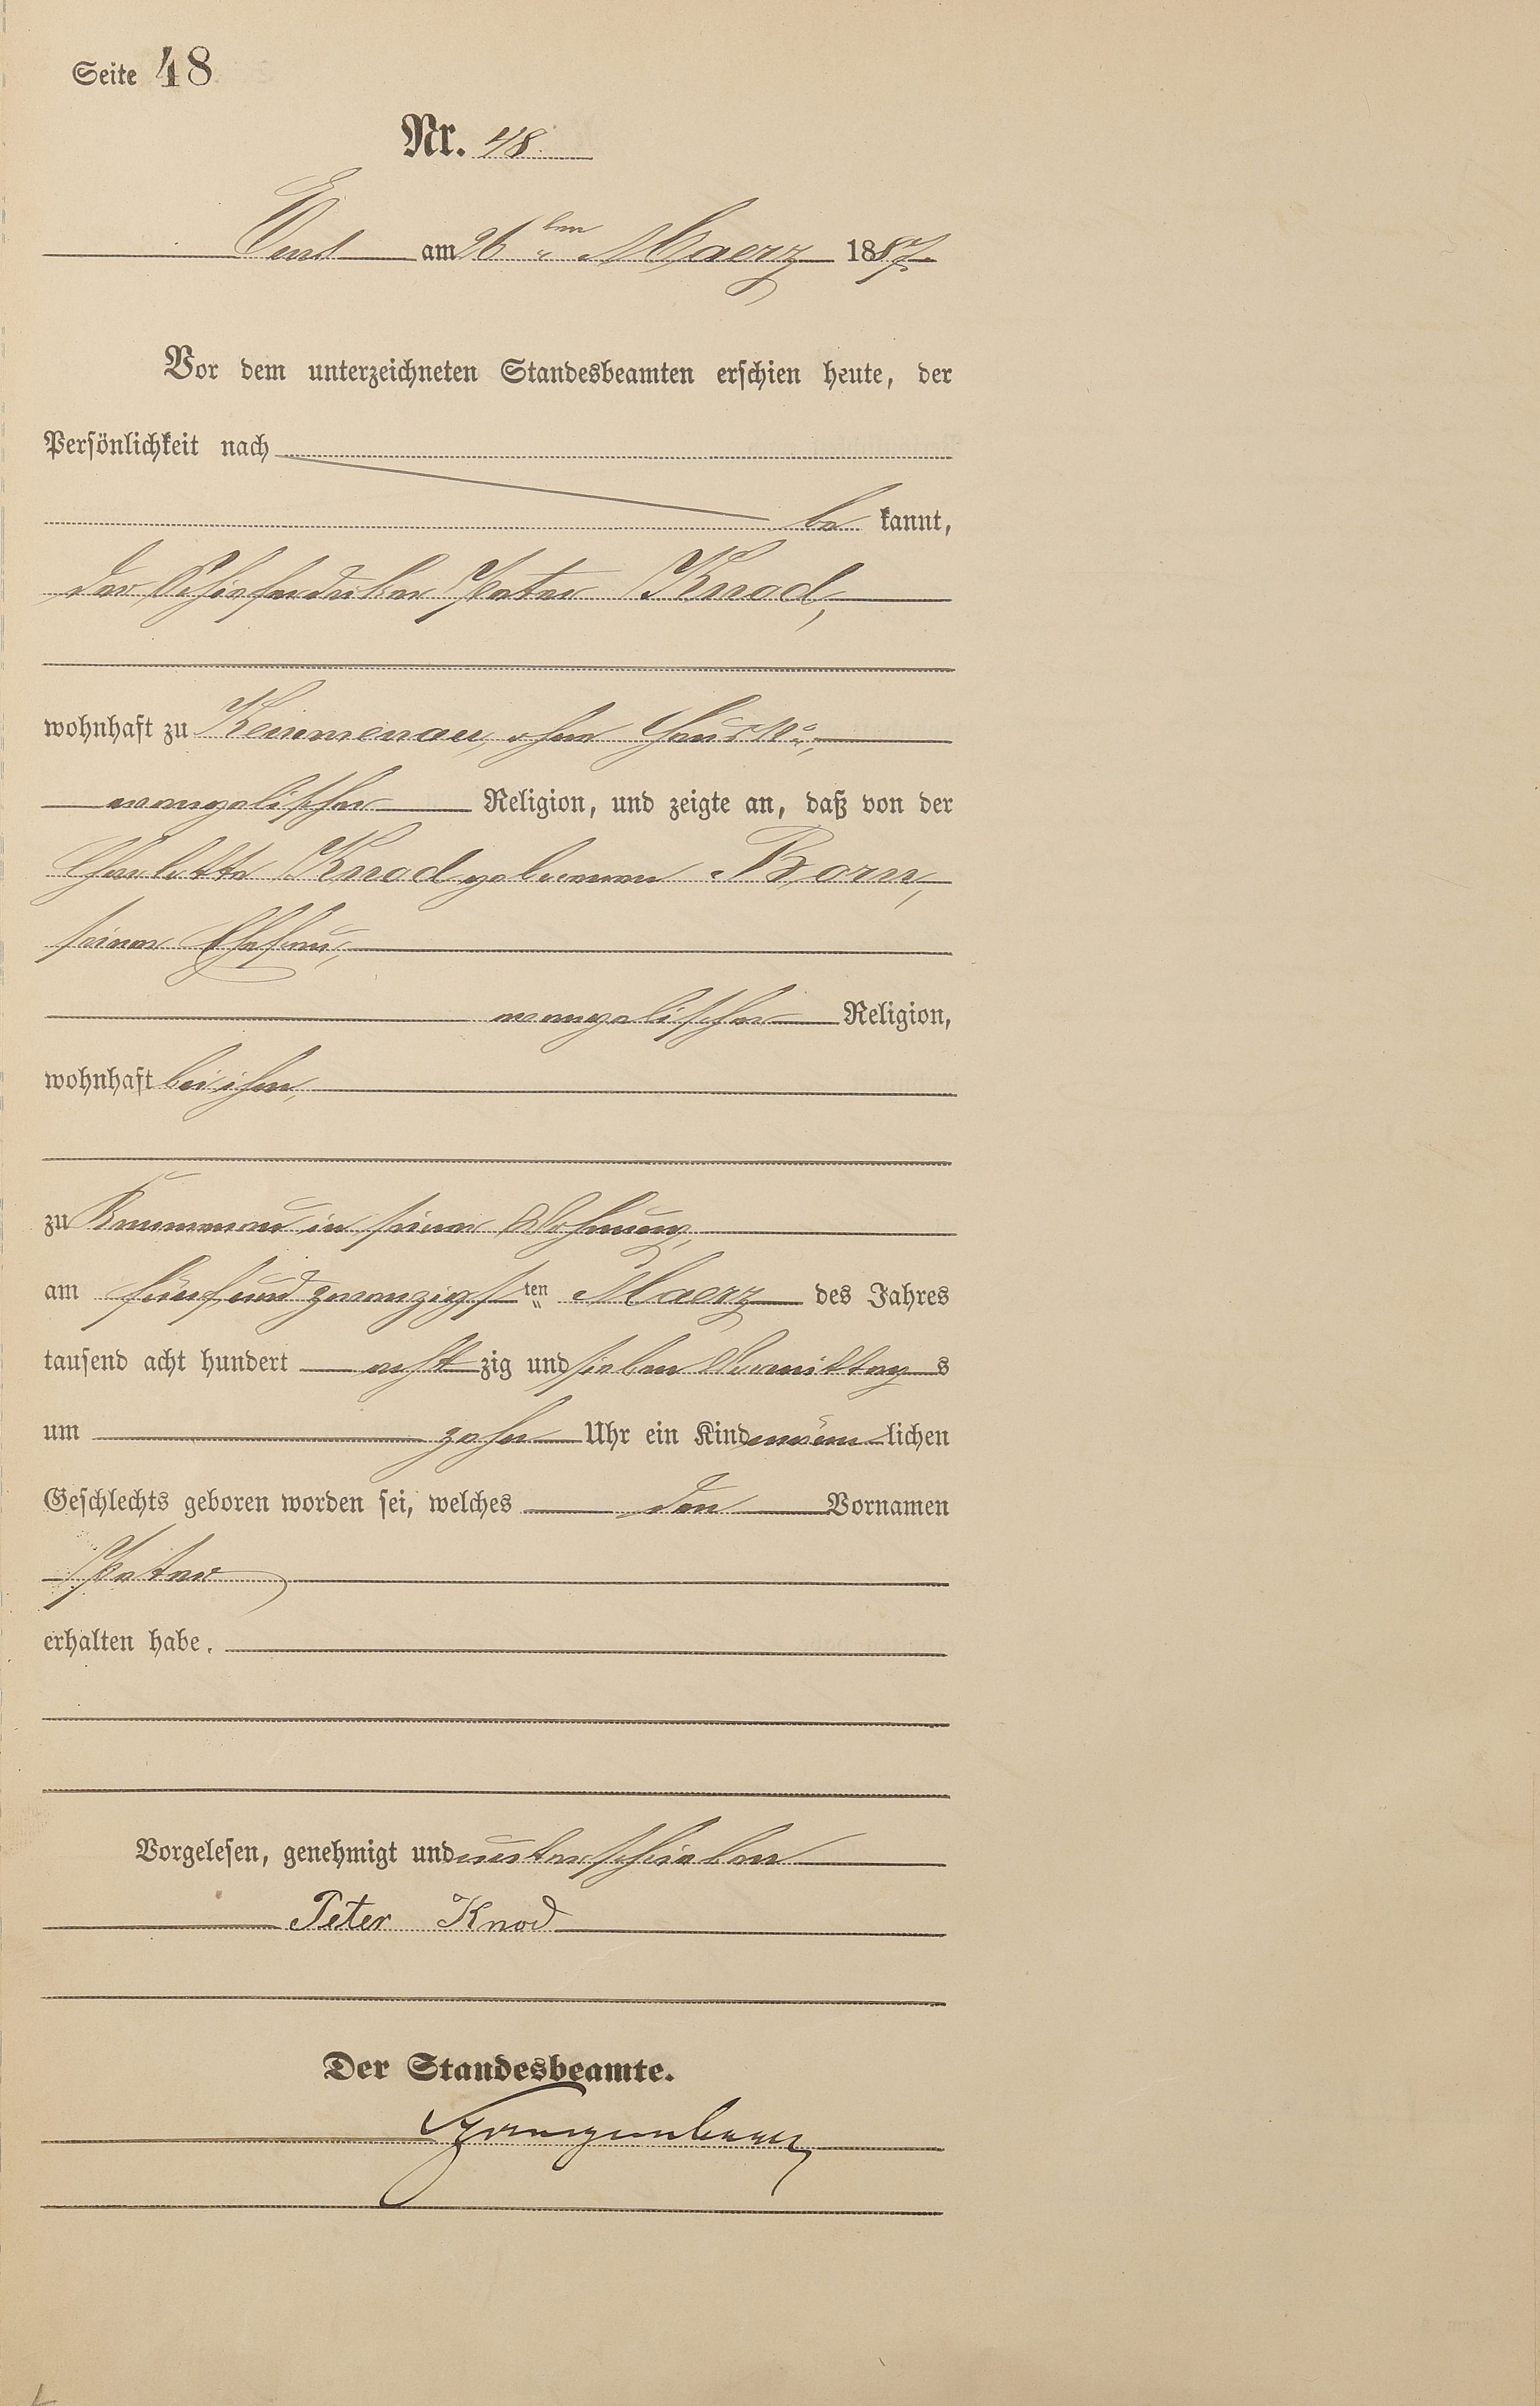 Seite 48
Nr. 48.
Ems am 26ten Maerz 1887.
Vor dem unterzeichneten Standesbeamten erschien heute, der
Persönlichkeit nach
be kannt,
der Schieferdecker Peter Knod,
wohnhaft zu Kemmenau, ohne Haus No.,
evangelischer Religion, und zeigte an, daß von der
Charlotte Knod geborenen Born,
seiner Ehefrau,
evangelischer Religion,
wohnhaft bei ihm,
zu Kemmenau in seiner Wohnung,
am fünf und zwanzigsten Maerz des Jahres
tausend acht hundert achtzig und sieben Vormittags
um zehn Uhr ein Kind männlichen
Geschlechts geboren worden sei, welches den Vornamen
Peter
erhalten habe.
Vorgelesen, genehmigt und unterschrieben
Peter Knod
Der Standesbeamte.